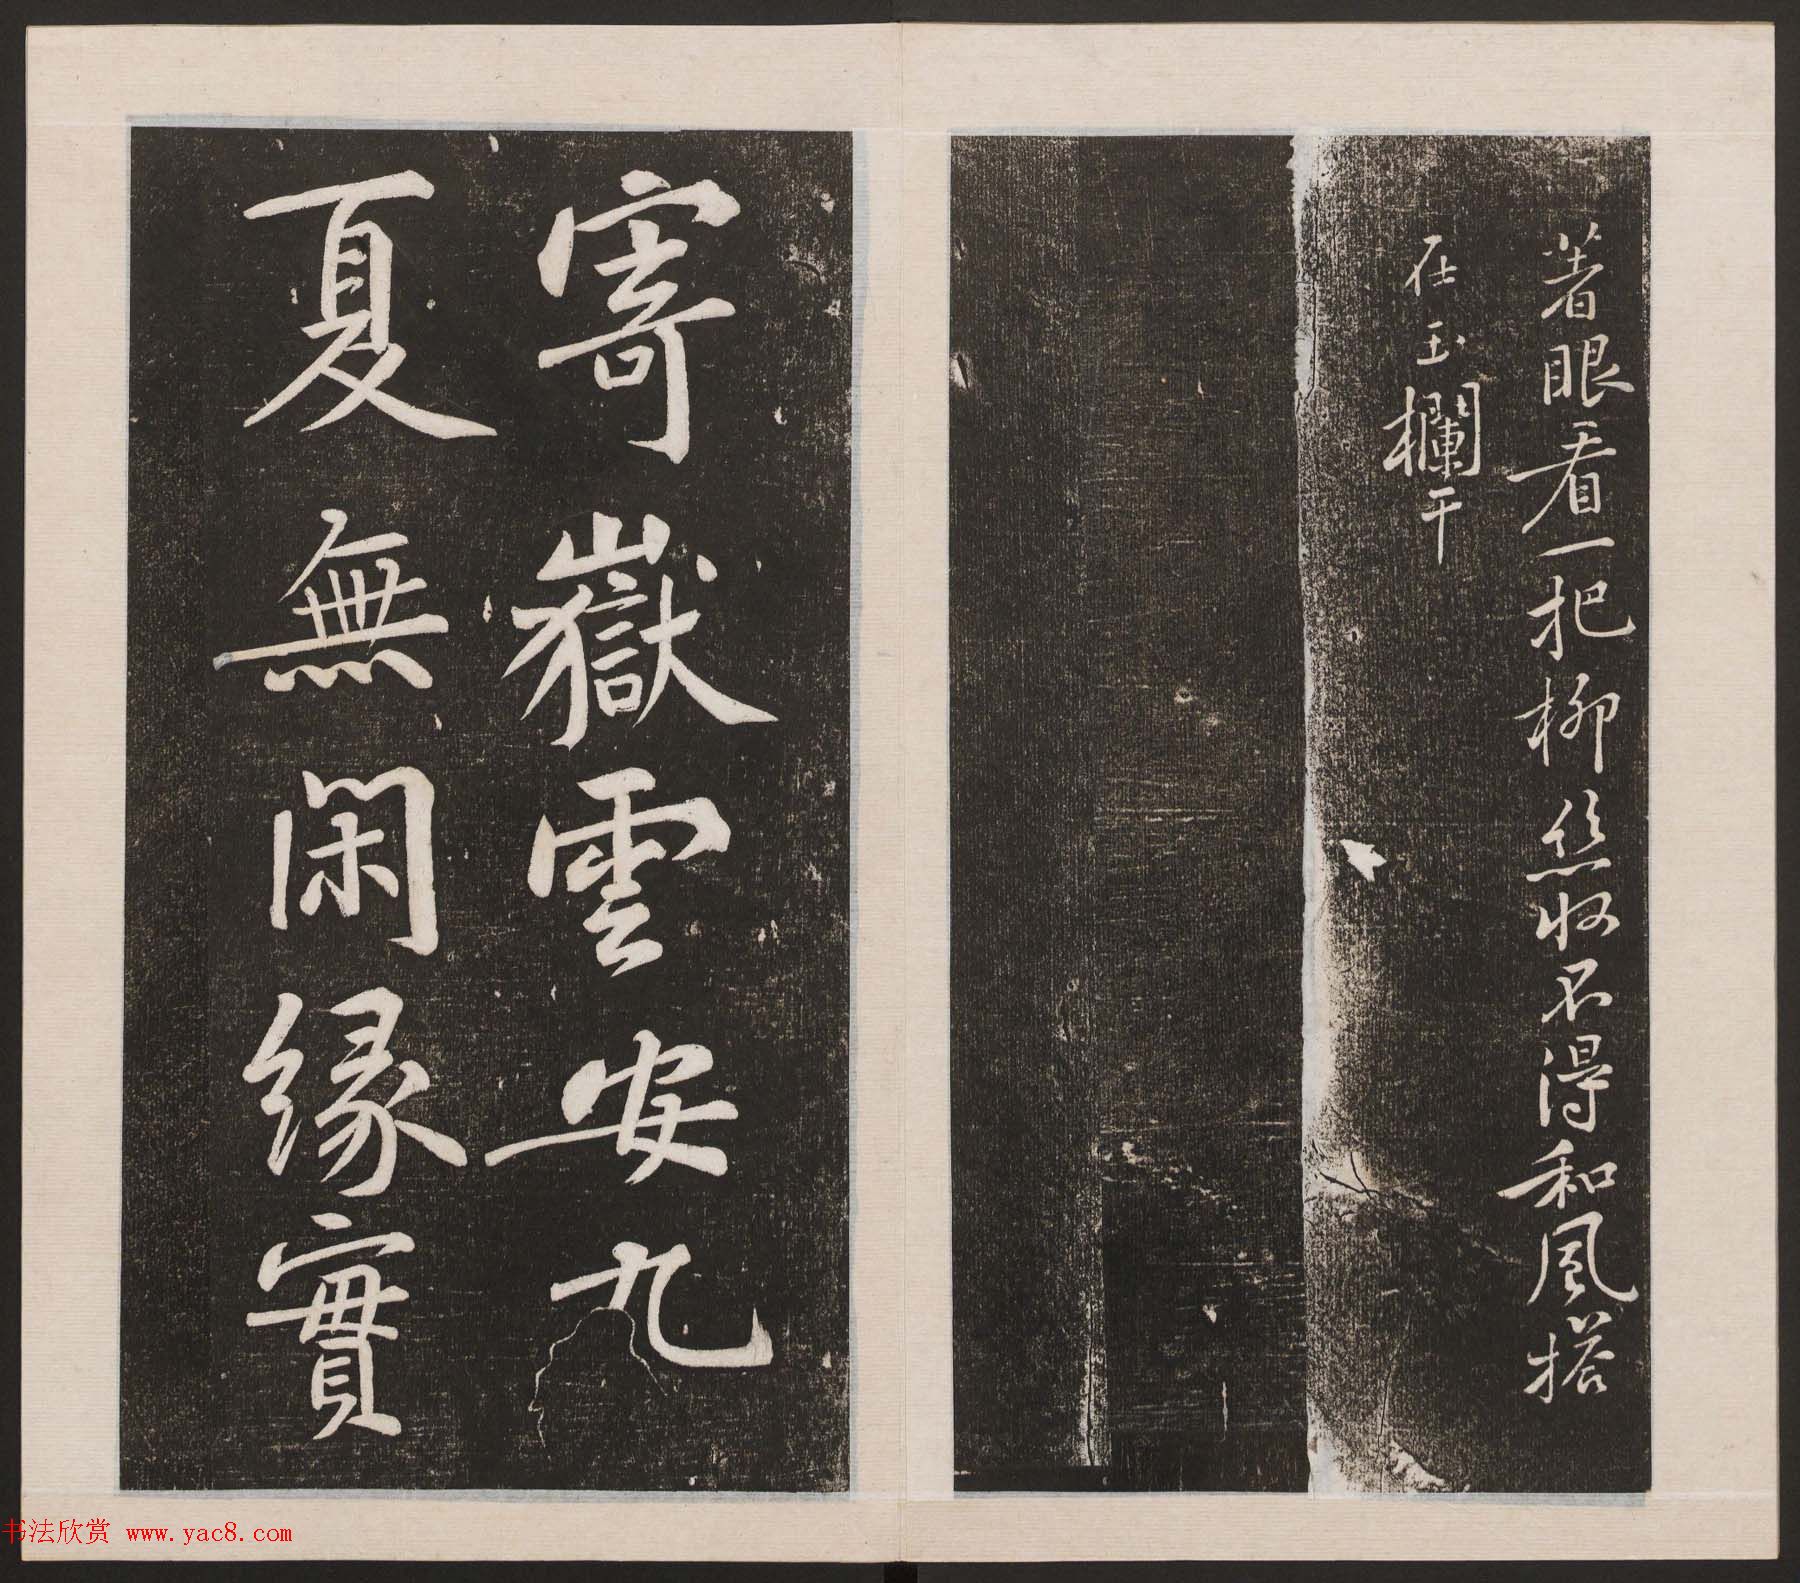 著眼看一把柳絲收不得和風搭
在玉欄干
寄嶽雲安九
夏無閑緣實
书法欣赏 www.yac8.com